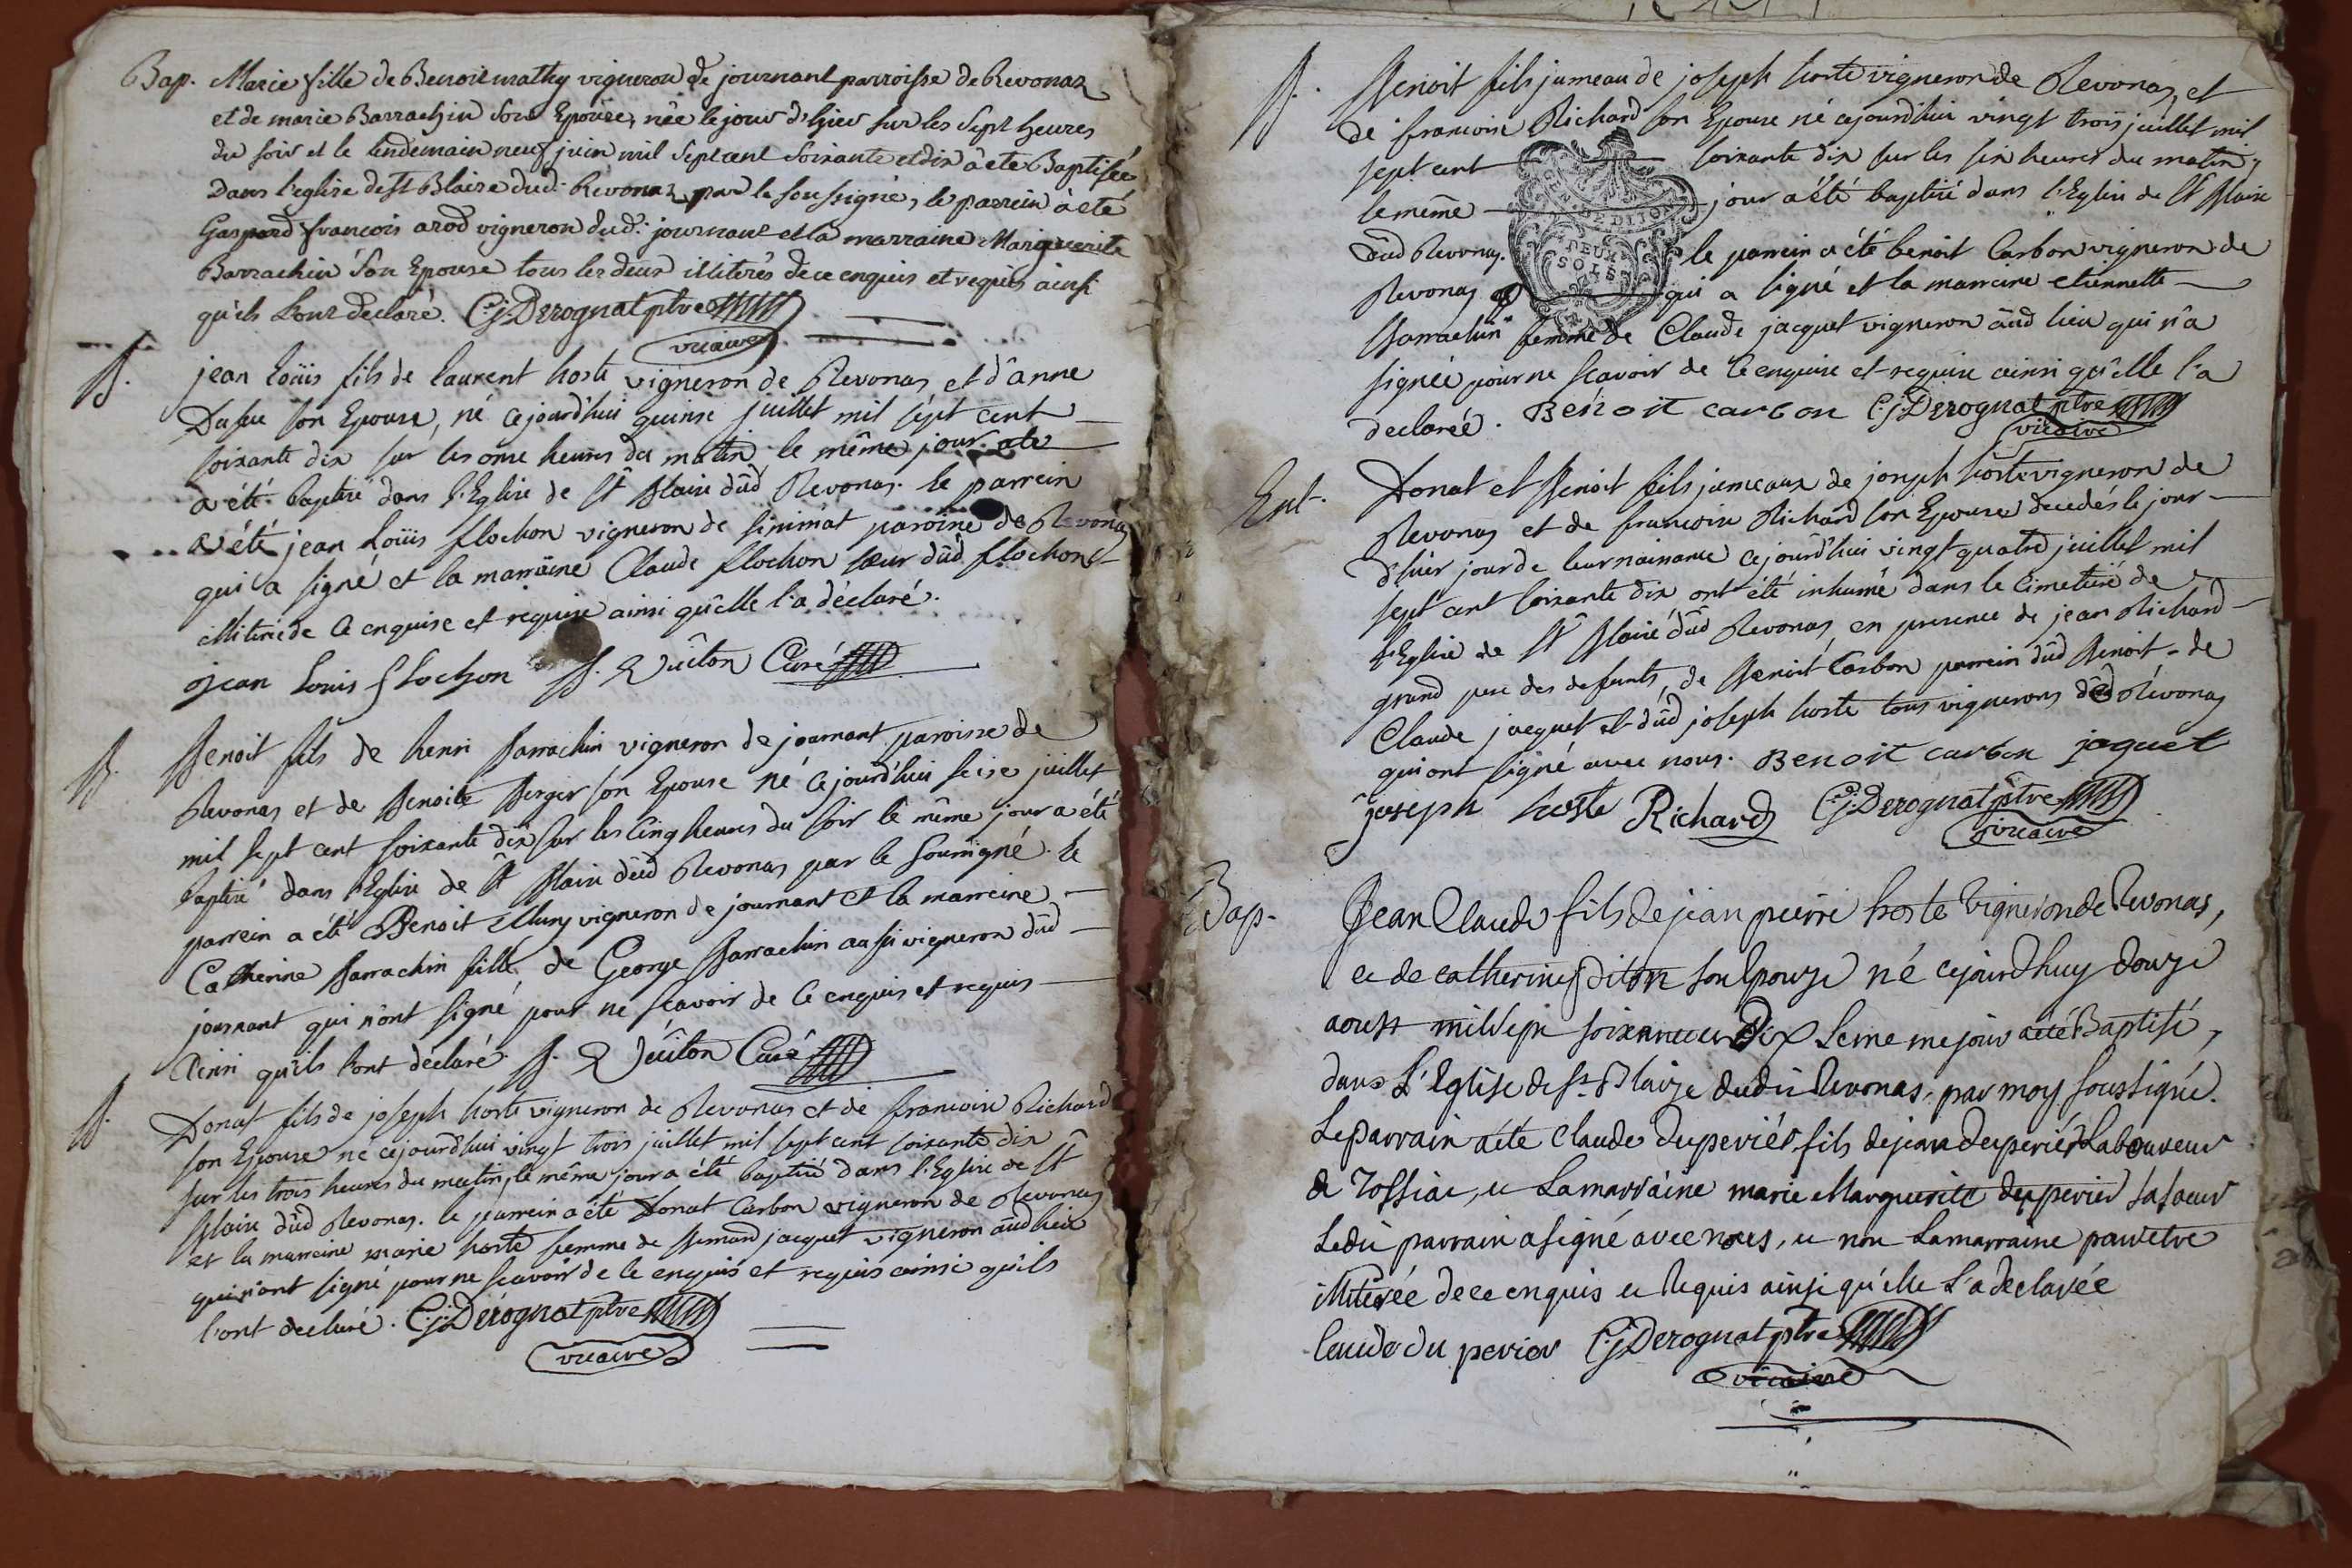 Bap. Marie fille de Benoit mathy vigneron de journant parroisse de Revonaz
et de marie Barrachin son Epouse, née le jour d'hier sur les sept heures
du soir et le lendemain neuf juin mil sept cent soixante et dix à eté Baptisée
dans l'eglise de St Blaise dud. Revonaz par le soussigné, le parrein à eté
Gaspard françois arod vigneron dud. journant et la marraine Marguerite
Barrachin son Epouse tous les deux illiterés de ce enquis et requis ainsi
qu'ils l'ont declaré. C.j. Derognat ptre
vicaire
B. jean loüis fils de laurent hoste vigneron de Revonas et d'anne
Dufue son Epouse, né cejourd'hui quinse juillet mil sept cent
soixante dix sur les onse heures du matin le même jour
a été baptisé dans l'Eglise de St Blaise dud Revonas. le parrein
a été jean Loüis flochon vigneron de paroisse de Revonas
qui a signé et la marraine Claude flochon sœur dud flochon
illiterée de ce enquise et requise ainsi qu'elle l'a déclaré.
jean louis flochon B. Curé
B. Benoit fils de henri Barrachin vigneron de journant paroisse de
Revonas et de Benoite Berger son Epouse né cejourd'hui seise juillet
mil sept cent soixante dix sur les cinq heures du soir le même jour a été
baptisé dans l'Eglise de St Blaise dud Revonas par le soussigné. le
parrein a été Benoit vigneron de journant et la marreine
Catherine Barrachin fille de George Barrachin aussi vigneron dud
journant qui n'ont signé pour ne scavoir de ce enquis et requis
ainsi qu'ils l'ont declaré B. Curé
B. Donat fils de joseph hoste vigneron de Revonas et de francoise Richard
son Epouse né cejourd'hui vingt trois juillet mil sept cent soixante dix
sur les trois heures du matin, le même jour a été baptisé dans l'Eglise de St
Blaise dud Revonas. le parrein a été Donat Carbon vigneron de Revonas
et la marreine marie hoste femme de Bernard jacquet vigneron aud lieu
qui n'ont signé pour ne scavoir de ce enquis et requis ainsi qu'ils
l'ont declaré. C.j. Derognat ptre
vicaire
B. Benoit fils jumeau de joseph hoste vigneron de Revonas, et
de francoise Richard son Epouse né cejourd'hui vingt trois juillet mil
sept cent soixante dix sur les six heures du matin,
le même jour a été baptisé dans l'Eglise de St Blaise
dud Revonas. le parrein a été benoit Carbon vigneron de
Revonas qui a signé et la marreine etiennette
Barrachin femme de Claude jacquet vigneron aud lieu qui n'a
signée pour ne scavoir de ce enquise et requise ainsi qu'elle l'a
declarée. Benoit carbon C.j. Derognat ptre
vicaire
GEN. DE DIJON
DEUX
SOLS
Ent. Donat et Benoit fils jumeaux de joseph hoste vigneron de
Revonas et de francoise Richard son Epouse decedés le jour
d'hier jour de leur naissance cejourd'hui vingt quatre juillet mil
sept cent soixante dix ont été inhumé dans le cimetière de
l'Eglise de St Blaise dud Revonas, en presence de jean Richard
grand pere des defunts, de Benoit Carbon parrein dud Benoit de
Claude jacquet et dud joseph hoste tous vignerons dud Révonas
qui ont signé avec nous. Benoit carbon jaquet
joseph hoste Richard C.j. Derognat ptre
vicaire
Bap. Jean Claude fils de jean pierre hoste vigneron de Revonas,
et de catherine son Epouze né cejourdhuy douze
aoust mil sept soixante et Dix le me me jour a été Baptisé,
dans L'Eglise de St Blaize dudit Revonas, par moy soussigné.
Le parrain a été Claude duperiér fils de jean duperiér Laboureur
de Tossiat, et La marraine marie Marguerite duperier sa soeur
Ledit parrain a signé avec nous, et non La marraine pour etre
illiterée de ce enquis et Requis ainsi qu'elle L'a declarée
Claude du perier C.j. Derognat ptre
vicaire